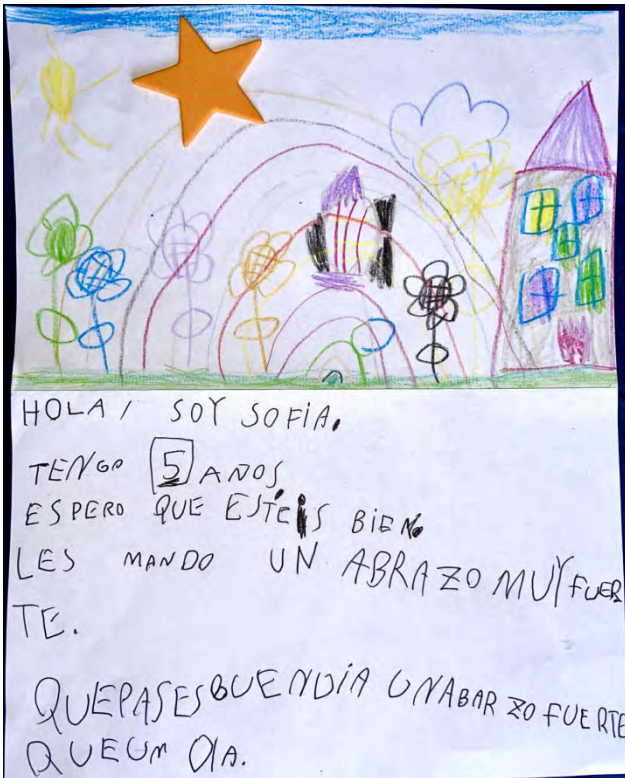 HOLA! SOY SOFÍA.
TENGO 5 AÑOS
ESPERO QUE ESTÉIS BIEN
LES MANDO UN ABRAZO MUY FUER
TE.
QUEPASESBUENDÍA UNABARZO FUERTE
QUEUN DIA.